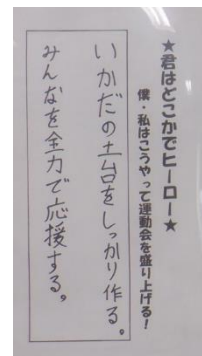 ★君はどこかでヒーロー★
僕・私はこうやって運動会を盛り上げる！
いかだの土台をしっかり作る。
みんなを全力で応援する。